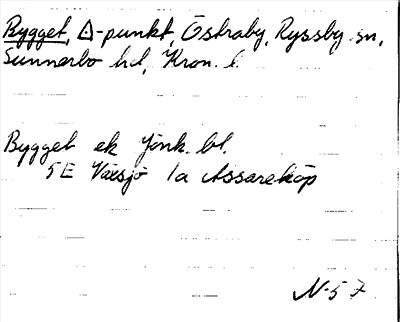 Bygget, △-punkt, Östraby, Ryssby sn,
Sunnerbo hd, Kron. l.
Bygget ek Jönk. bl.
5E Växsjö 1a Assareköp
N-57